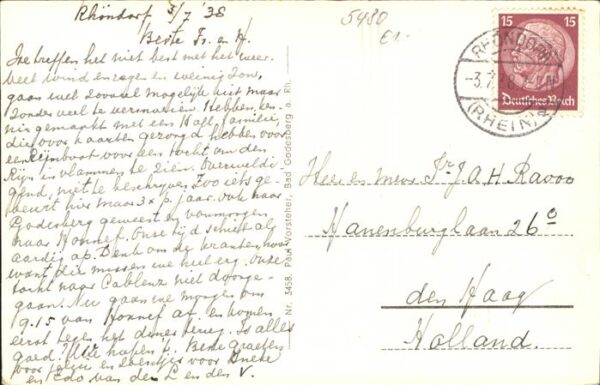 Rhöndorf 3/7 '38
Beste Fr. en H.
We treffen het niet best met het weer.
veel wind en regen en weinig zon,
gaan wel zooveel mogelijk uit maar
zonder veel te vermoeien. Hebben ken-
nis gemaakt met een Holl. familie,
die voor kaarten gezorgd hebben voor
een Rijnboot voor een tocht om den
Rijn in vlammen te zien. Overweldi-
gend, niet te beschrijven. Zoo iets ge-
beurt hier maar 3 x p. jaar. Ook naar
Godesberg geweest
naar Honnef. Onze tijd schiet al
aardig op. Denk om de kranten hoor
want die missen we heel erg. Onze
tocht naar Coblenz niet doorge-
gaan. Nu gaan we morgen om
9.15 van Honnef af. en komen
eerst tegen het diner terug. Is alles
goed? Wij hopen 't. Beste Groeten
voor jullie en
en Edo van den L en den V.
5480
€1-
15 15
Deutsches Reich
RHÖNDORF
-3.7.
(RHEIN)
Nr. 3458. Paul Vorsteher, Bad Godesberg a. Rh.
Heer en Mevr Dr J A H Ravoo
Hanenburglaan 26°
den Haag
Holland.